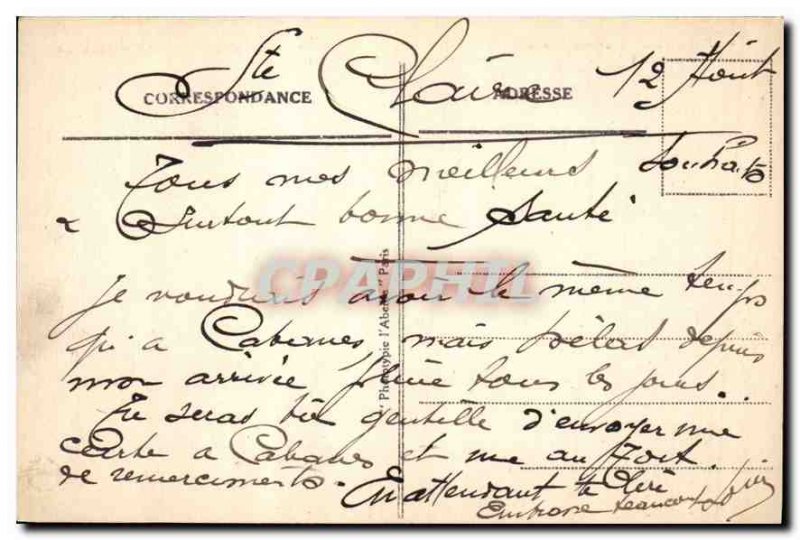 Ste Claire 12 Août
CORRESPONDANCE ADRESSE
Tous mes meilleurs souhaits
& Surtout bonne Santé
CPAPHIL
Je voudrais avoir le même temps
qu'a Cabanes mais hélas depuis
mon arrivée pluie tous les jours.
Tu seras bien gentille d'envoyer une
carte a Cabanes et une au Fort
de remerciments. En attendant te lire
Embrasse beaucoup
Phototypie l'Abeille Paris